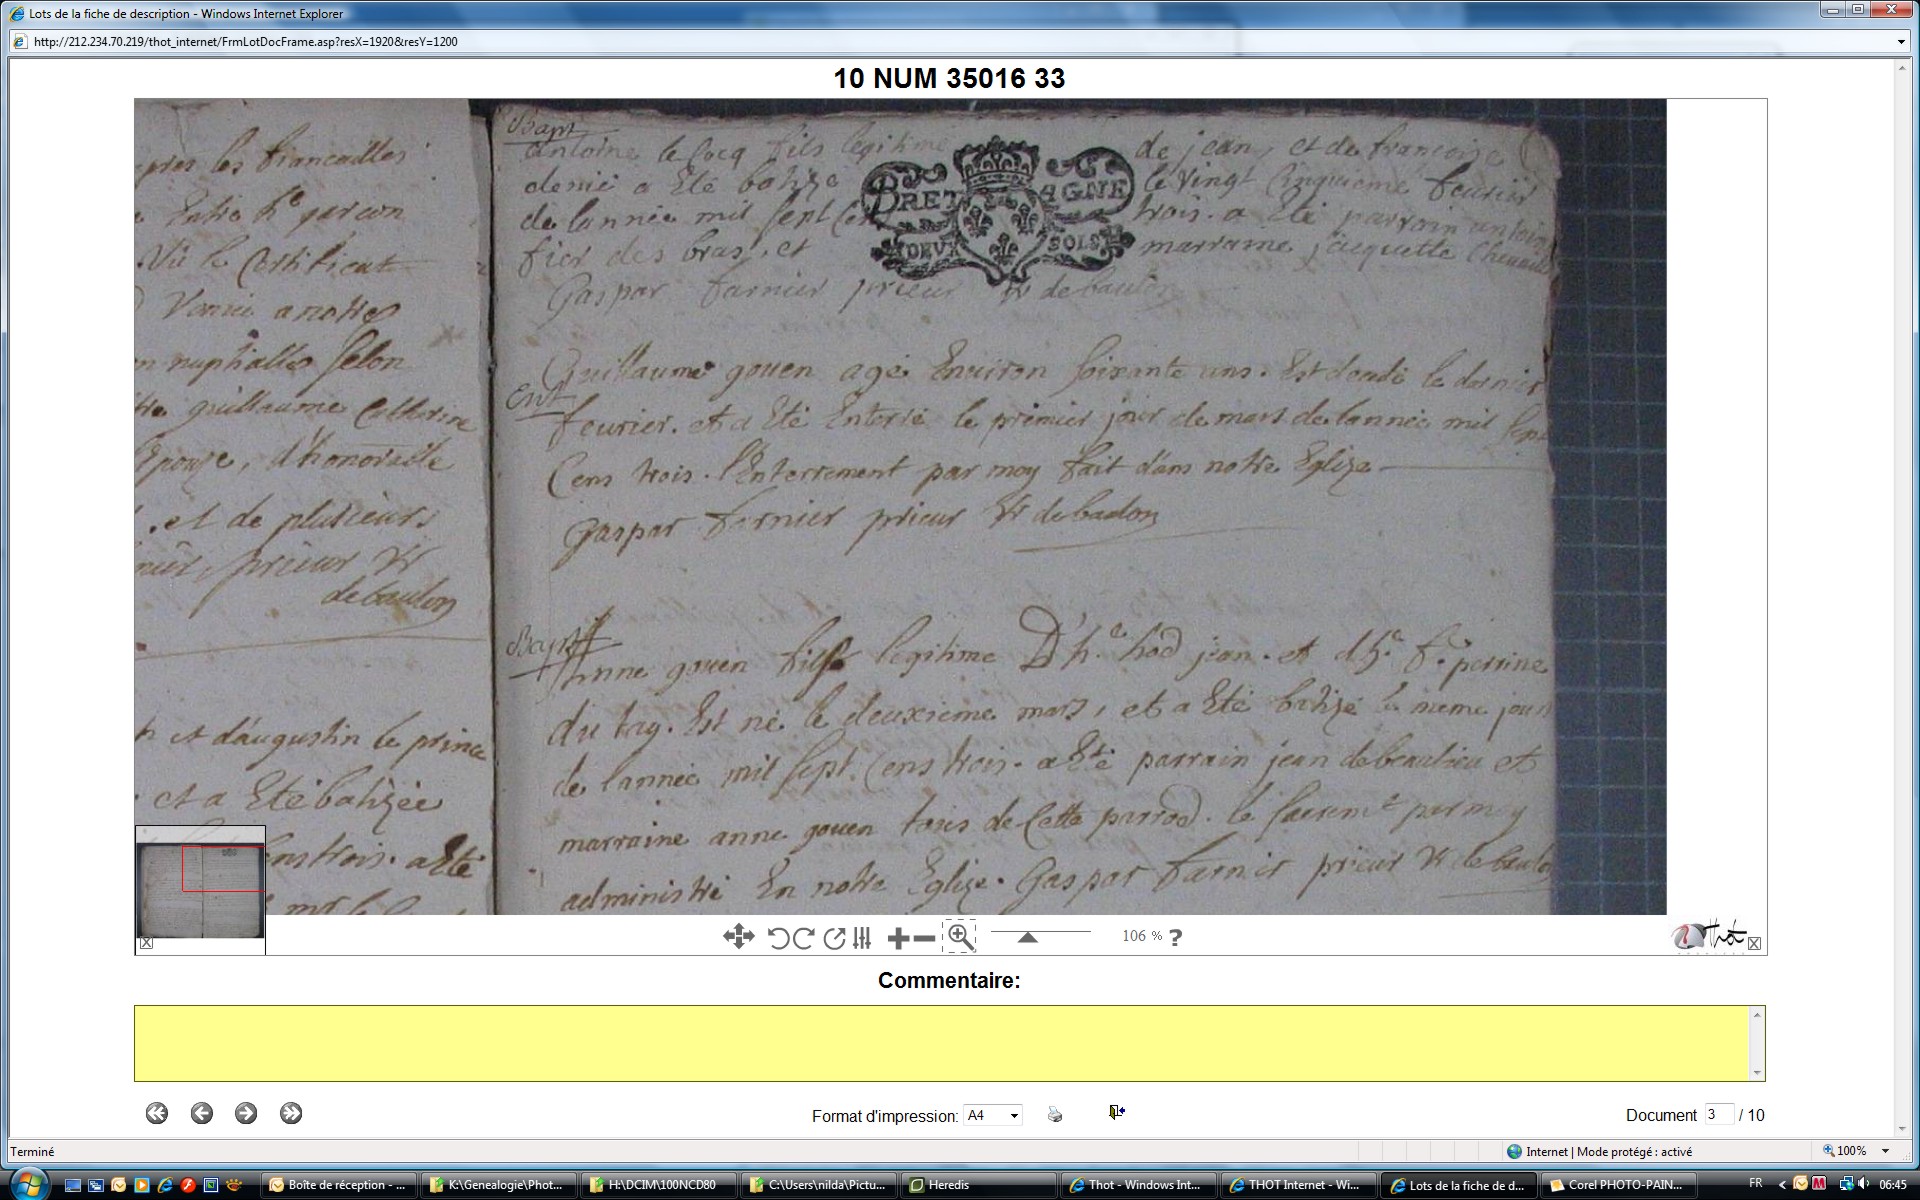 Lots de la fiche de description - Windows Internet Explorer
http://212.234.70.219/thot_internet/FrmLotDocFrame.asp?resX=1920&resY=1200
10 NUM 35016 33
pres les fiancailles
Entre h^e garcon
Vû le Certificat
nuptialle selon
guillaume Catherine
Epouze, d'honorable
et de plusieurs
prieur Vr
debaulon
et d'augustin le prince
et a Eté batizée
trois. a Eté
Bapt
antoine le Cocq fils legitime de jean et de francoise
denié a Eté batizé le vingt Cinquieme feurier
de lannée mil sept Cen trois. a Eté parrain antoine
fier des bras, et marraine jacquette
BRETAGNE
DEUX SOLS
Gaspar farnier prieur Vr debaulon
Ent
Guillaume gouen agé Enuiron soixante ans. Est decedé le dernier
feurier. et a Eté Enterré le premier jour de mars de lannée mil sept
Cens trois. l'Enterrement par moy fait dans notre Eglize
Gaspar farnier prieur Vr debaulon
Bapt
Anne gouen fils legitime D'h.e hoe jean. et d'h.e f.e perrine
du tay. Est né le deuxieme mars, et a Eté batizé le meme jour
de lannée mil sept. Cens trois. a Eté parrain jean debeaulieu et
marraine anne gouen tous de Cette parroe. le sacrem.t par moy
administré En notre Eglize. Gaspar farnier prieur Vr debaulon
106 % ?
Thot
Commentaire:
Format d'impression: A4
Document 3 / 10
Terminé
Internet | Mode protégé : activé
100%
Boîte de réception - ...
K:\Genealogie\Phot...
H:\DCIM\100NCD80
C:\Users\nilda\Pictu...
Heredis
Thot - Windows Int...
THOT Internet - Wi...
Lots de la fiche de d...
Corel PHOTO-PAIN...
FR
06:45